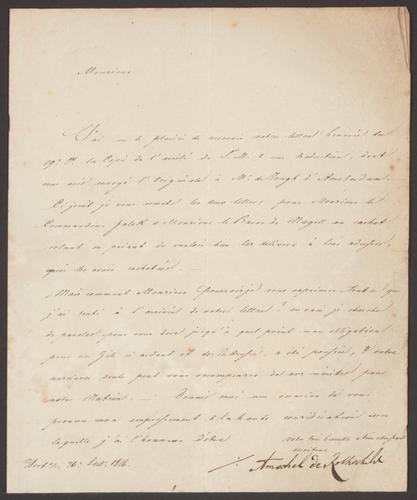 Monsieur
J'ai eu le plaisir de recevoir votre lettre honorée du
la Copie de l'arrêté de S. M. & une traduction, dont
envoyé l'Originale à Mr. de Jongh d'Amsterdam.
Ci joint je vous remets les deux lettres pour Monsieur le
Commandeur & Monsieur le Baron de Nagell au cachet
volant en priant de vouloir bien les délivrer à leur adresse,
après les avoir cachetées. —
Mais comment Monsieur! pourrai-je vous exprimer tout ce que
j'ai senti à l'arrivée de votre lettre? en vain je cherche
de paroles pour vous dire jusqu'à quel point mon obligation
pour un zèle si ardent et désintéressé a été poussée, & votre
seule peut vous récompenser de
notre Maison. — Donnez moi une occasion de vous
prouver mon empressement & la haute considération avec
laquelle j'ai l'honneur d'être
votre très humble & très obéissant
serviteur
1816.
Amschel de Rothschild